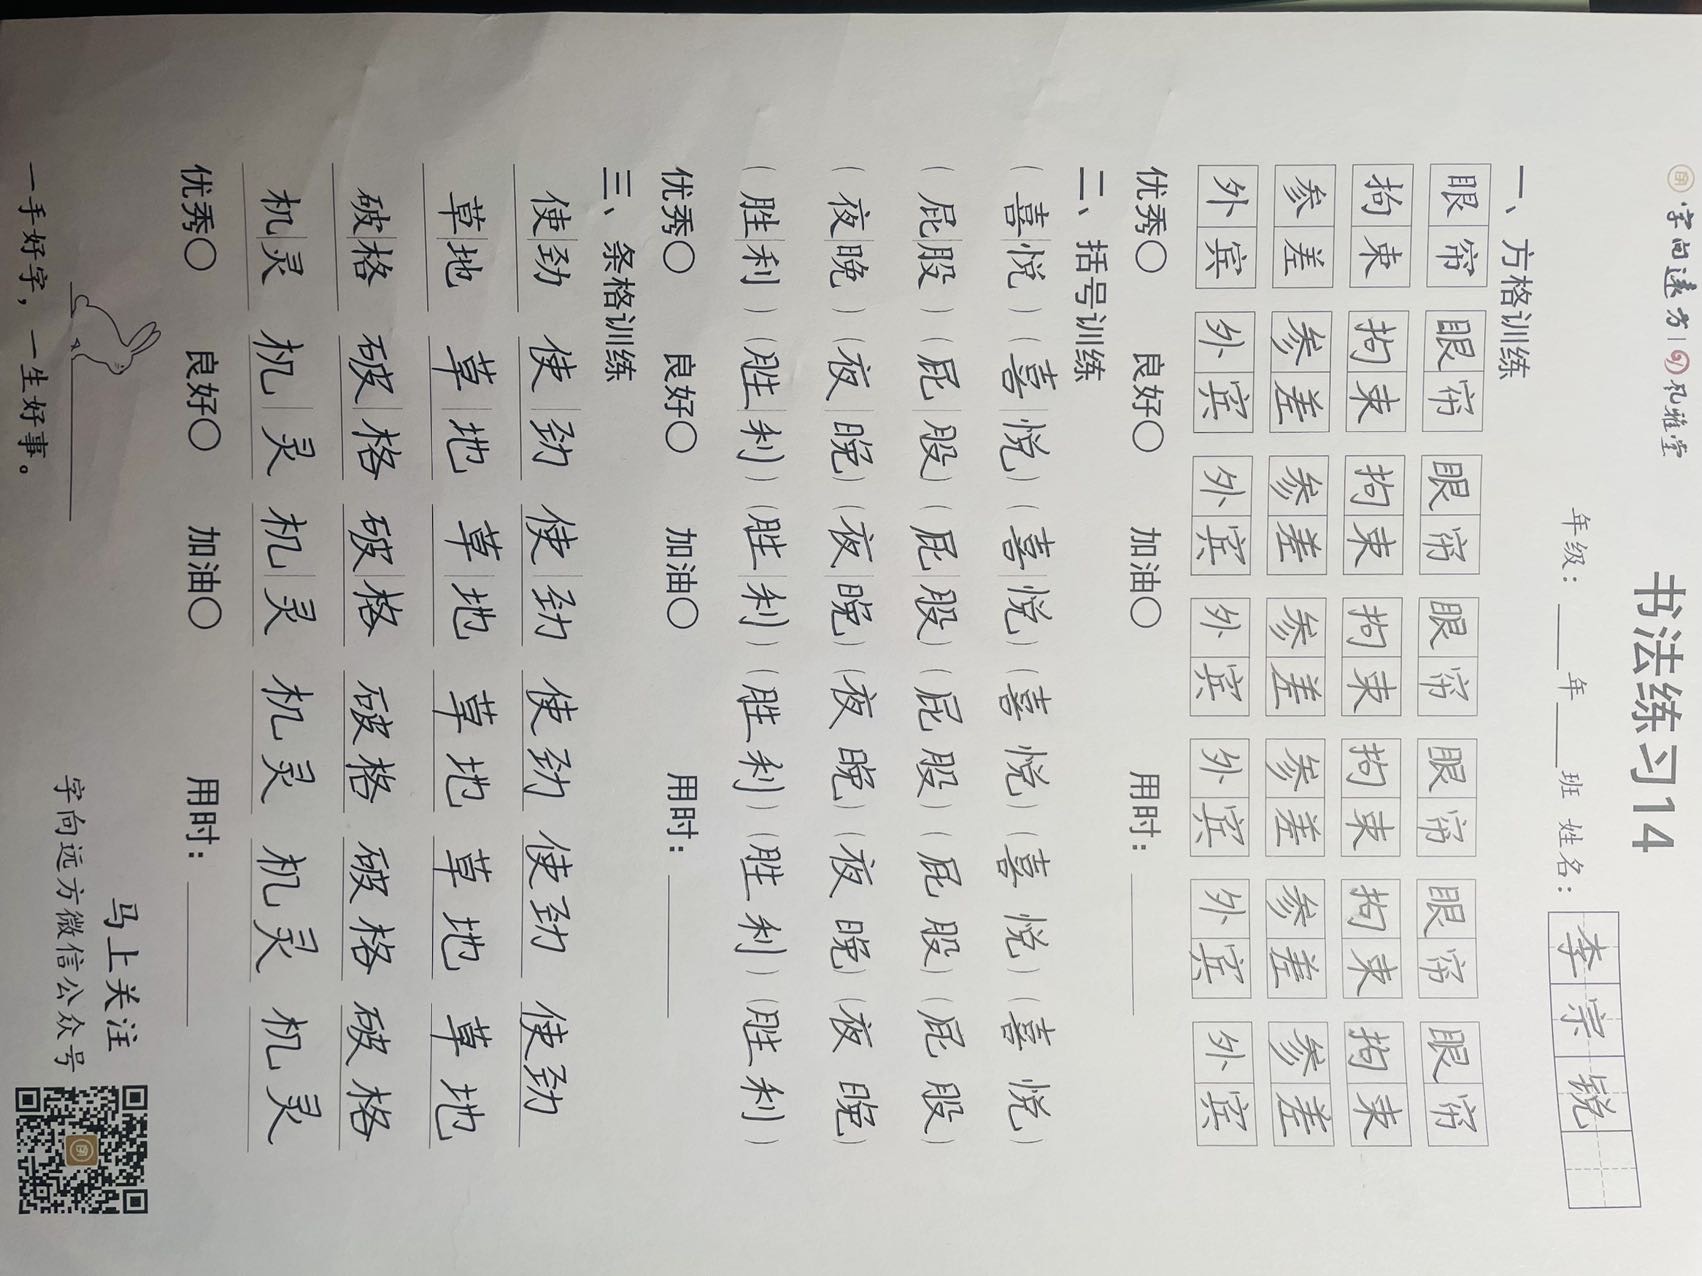 字向远方 | 礼雅堂
书法练习14
年级：____年____班 姓名：李宗锐
一、方格训练
眼帘 眼帘 眼帘 眼帘 眼帘 眼帘 眼帘
拘束 拘束 拘束 拘束 拘束 拘束 拘束
参差 参差 参差 参差 参差 参差 参差
外宾 外宾 外宾 外宾 外宾 外宾 外宾
优秀○ 良好○ 加油○ 用时：____
二、括号训练
（喜悦）（喜悦）（喜悦）（喜悦）（喜悦）（喜悦）
（屁股）（屁股）（屁股）（屁股）（屁股）（屁股）
（夜晚）（夜晚）（夜晚）（夜晚）（夜晚）（夜晚）
（胜利）（胜利）（胜利）（胜利）（胜利）（胜利）
优秀○ 良好○ 加油○ 用时：____
三、条格训练
使劲 使劲 使劲 使劲 使劲 使劲
草地 草地 草地 草地 草地 草地
破格 破格 破格 破格 破格 破格
机灵 机灵 机灵 机灵 机灵 机灵
优秀○ 良好○ 加油○ 用时：____
马上关注
字向远方微信公众号
一手好字，一生好事。